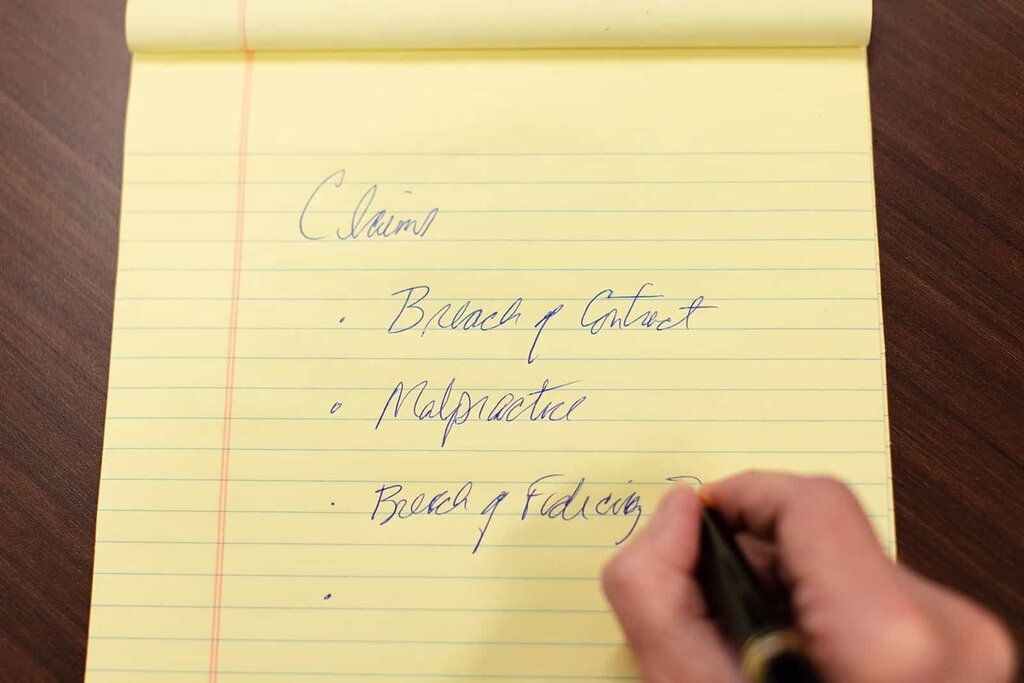 Claims
· Breach of Contract
· Malpractice
· Breach of Fiduciary
·